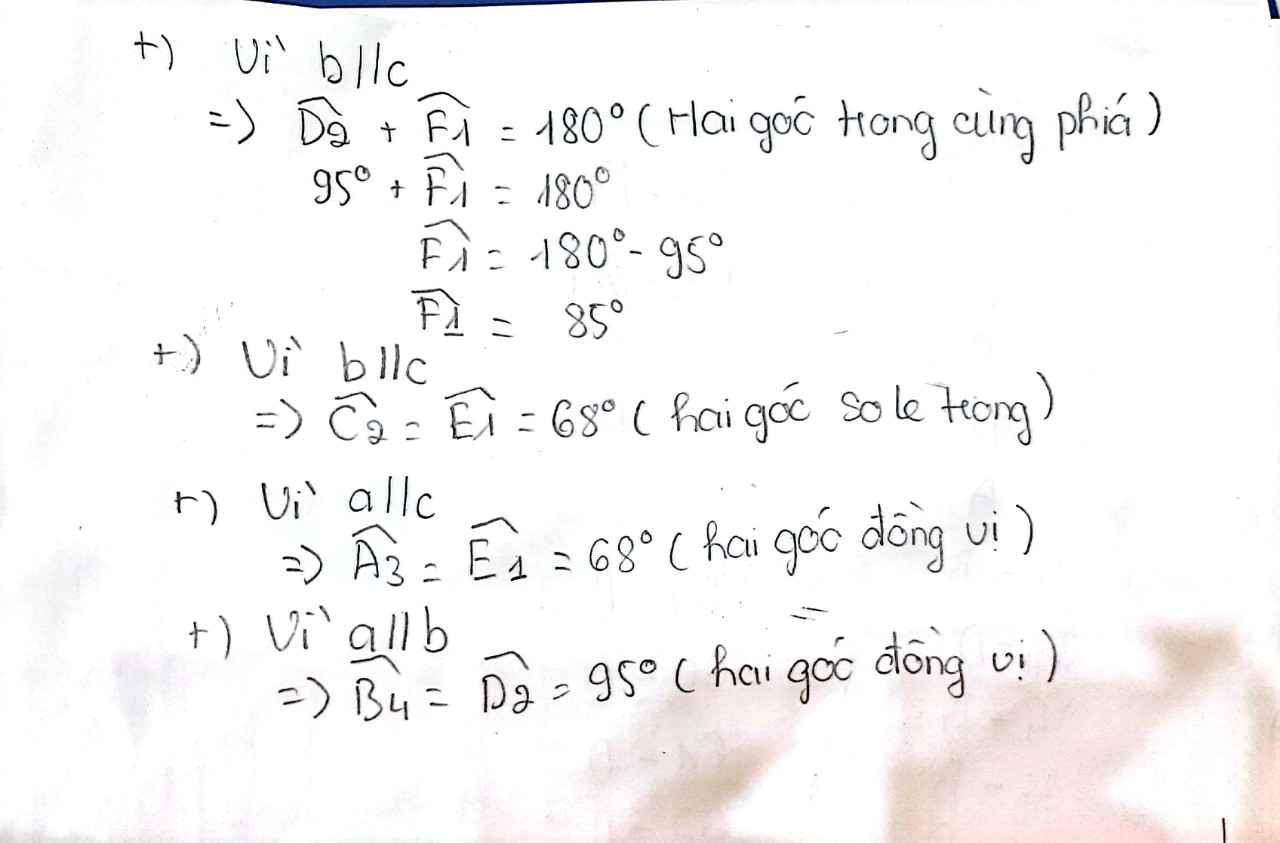 +) Vì b//c
=) D̂2 + F̂1 = 180° ( Hai góc trong cùng phiá )
95° + F̂1 = 180°
F̂1 = 180° - 95°
F̂1 = 85°
+) Vì b//c
=) Ĉ2 = Ê1 = 68° ( hai góc so le trong )
+) Vì a//c
=) Â3 = Ê1 = 68° ( hai góc đồng vị )
+) Vì a//b
=) B̂4 = D̂2 = 95° ( hai góc đồng vị )